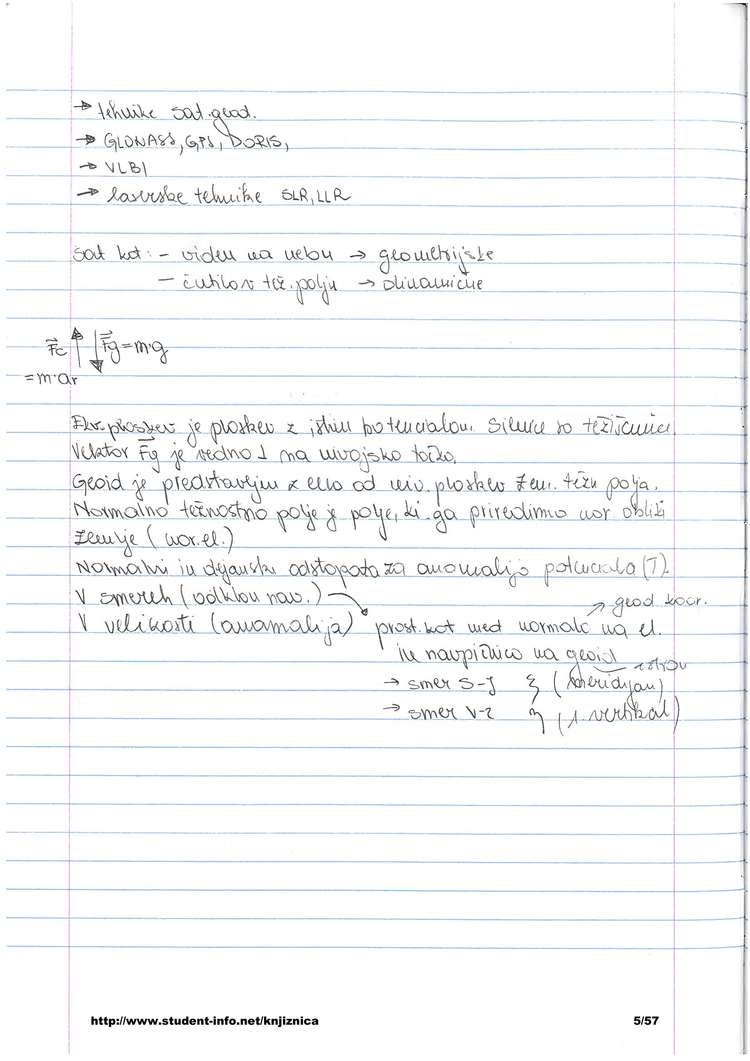 → tehnike sat. geod.
→ GLONASS, GPS, DORIS,
→ VLBI
→ laserske tehnike SLR, LLR
sat kot: - viden na nebu → geometrijske
- čutilo v tež. polju → dinamične
Fc ↑ ↓ Fg = m·g
= m·ar
Ekv. ploskev je ploskev z istim potencialom. Silnice so težiščnice.
Vektor Fg je vedno ⊥ na nivojsko točko.
Geoid je predstavljen z eno od niv. ploskev zem. težn polja.
Normalno težnostno polje je polje, ki ga priredimo nor obliki
zemlje (nor. el.)
Normalni in dejanski odstopata za anomalijo potenciala (T).
V smereh (odklon nav.)
↗ geod koor.
V velikosti (anamalija) prost. kot med normalo na el.
in navpičnico na geoid
astron
→ smer S-J ξ (meridijan)
→ smer V-Z η (1. vertikal)
http://www.student-info.net/knjiznica 5/57